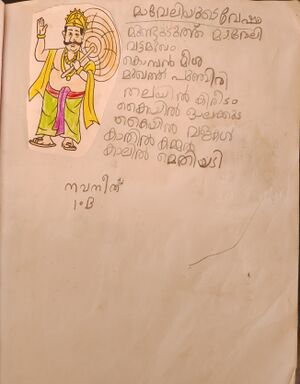 മാവേലിയുടെ വേഷം
മുണ്ടുടുത്ത മാവേലി
വട്ടമിസം
കൊമ്പൻ മീശ
മുഖത്ത് പുഞ്ചിരി
തലയിൽ കിരീടം
കൈയിൽ ഓലക്കുട
കൈയിൽ വളകൾ
കാതിൽ കമ്മൽ
കാലിൽ മെതിയടി
നവനീത്
1.B